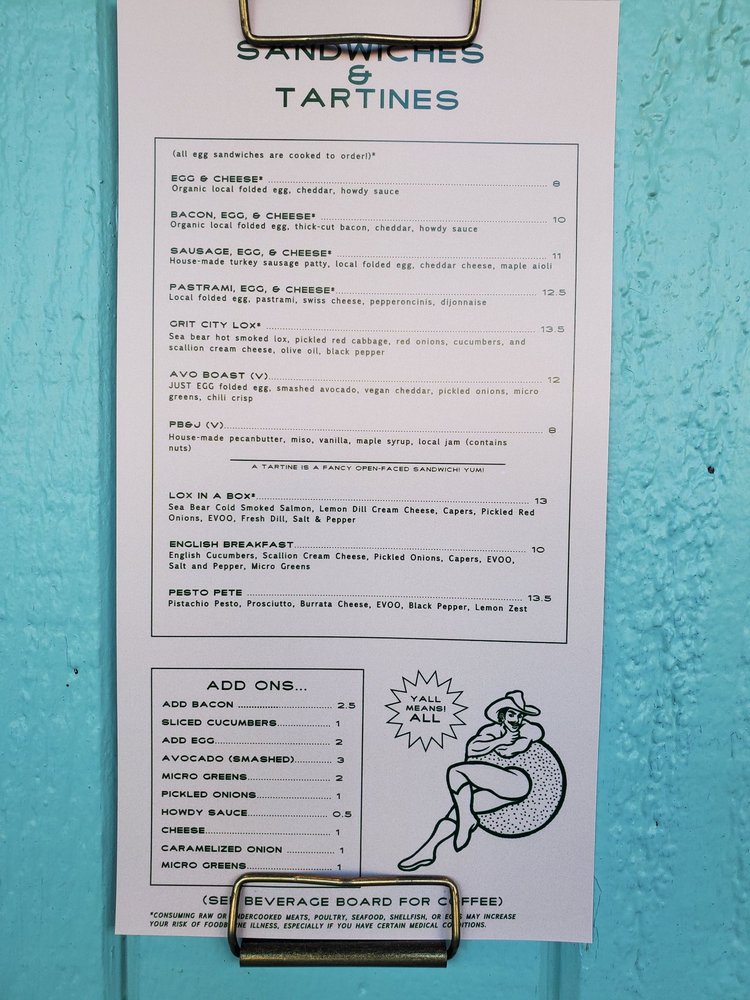 SANDWICHES
&
TARTINES
(all egg sandwiches are cooked to order!)*
EGG & CHEESE* 8
Organic local folded egg, cheddar, howdy sauce
BACON, EGG, & CHEESE* 10
Organic local folded egg, thick-cut bacon, cheddar, howdy sauce
SAUSAGE, EGG, & CHEESE* 11
House-made turkey sausage patty, local folded egg, cheddar cheese, maple aioli
PASTRAMI, EGG, & CHEESE* 12.5
Local folded egg, pastrami, swiss cheese, pepperoncinis, dijonnaise
GRIT CITY LOX* 13.5
Sea bear hot smoked lox, pickled red cabbage, red onions, cucumbers, and
scallion cream cheese, olive oil, black pepper
AVO BOAST (V) 12
JUST EGG folded egg, smashed avocado, vegan cheddar, pickled onions, micro
greens, chili crisp
PB&J (V) 8
House-made pecanbutter, miso, vanilla, maple syrup, local jam (contains
nuts)
A TARTINE IS A FANCY OPEN-FACED SANDWICH! YUM!
LOX IN A BOX* 13
Sea Bear Cold Smoked Salmon, Lemon Dill Cream Cheese, Capers, Pickled Red
Onions, EVOO, Fresh Dill, Salt & Pepper
ENGLISH BREAKFAST 10
English Cucumbers, Scallion Cream Cheese, Pickled Onions, Capers, EVOO,
Salt and Pepper, Micro Greens
PESTO PETE 13.5
Pistachio Pesto, Prosciutto, Burrata Cheese, EVOO, Black Pepper, Lemon Zest
ADD ONS...
ADD BACON 2.5
SLICED CUCUMBERS 1
ADD EGG 2
AVOCADO (SMASHED) 3
MICRO GREENS 2
PICKLED ONIONS 1
HOWDY SAUCE 0.5
CHEESE 1
CARAMELIZED ONION 1
MICRO GREENS 1
YALL
MEANS!
ALL
(SEE BEVERAGE BOARD FOR COFFEE)
*CONSUMING RAW OR UNDERCOOKED MEATS, POULTRY, SEAFOOD, SHELLFISH, OR EGGS MAY INCREASE
YOUR RISK OF FOODBORNE ILLNESS, ESPECIALLY IF YOU HAVE CERTAIN MEDICAL CONDITIONS.